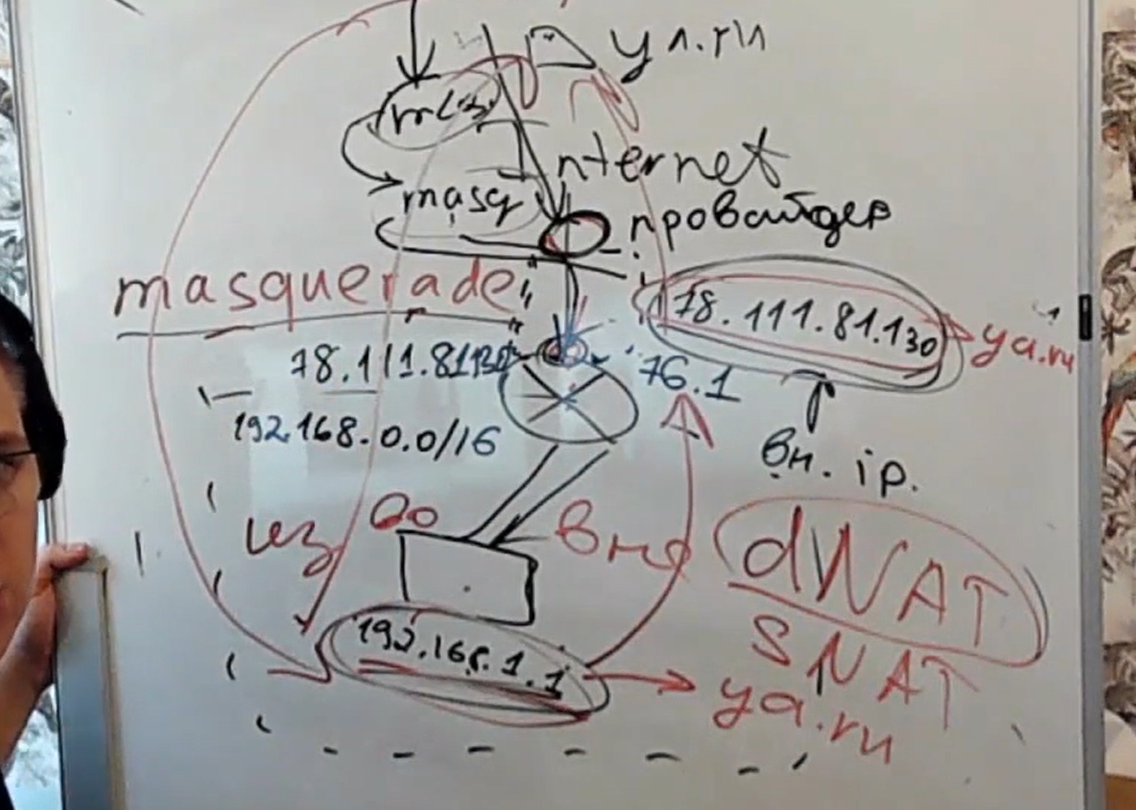 ya.ru
Internet
masq
провайдер
masquerade
78.111.81.130
ya.ru
78.111.81.130
76.1
192.168.0.0/16
вн. ip.
из
вне
dNAT
SNAT
192.168.1.1
ya.ru